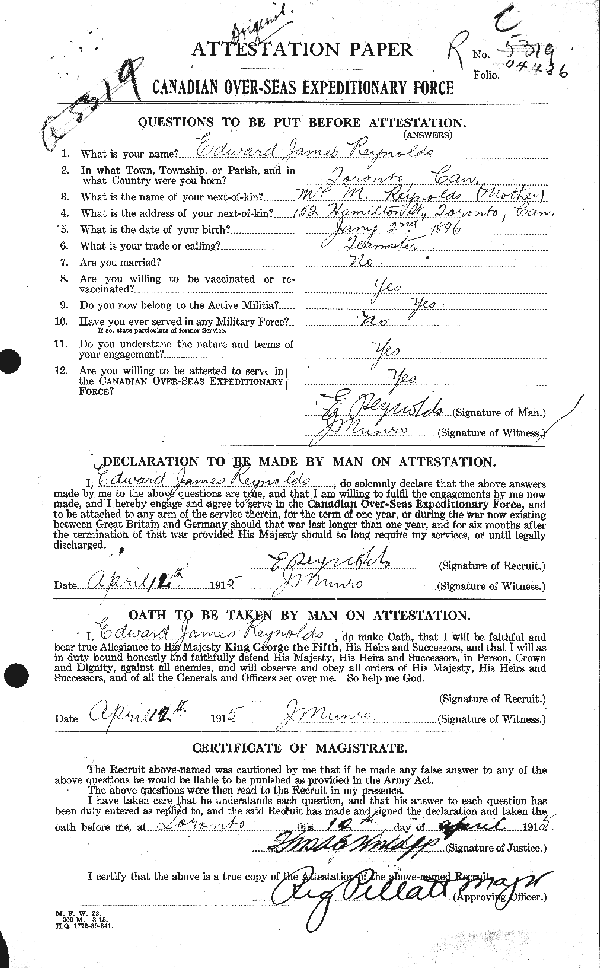 Original.
C
ATTESTATION PAPER
R No. 5319
Folio. 04436
5319
CANADIAN OVER-SEAS EXPEDITIONARY FORCE
QUESTIONS TO BE PUT BEFORE ATTESTATION.
(ANSWERS)
1. What is your name? Edward James Reynolds
2. In what Town, Township, or Parish, and in
what Country were you born? Toronto Can.
3. What is the name of your next-of-kin? Mrs M. Reynolds (Mother)
4. What is the address of your next-of-kin? 152 Hamilton St, Toronto, Can.
5. What is the date of your birth? Jany 2nd 1896
6. What is your trade or calling? Teamster
7. Are you married? No
8. Are you willing to be vaccinated or re-
vaccinated? Yes
9. Do you now belong to the Active Militia? Yes
10. Have you ever served in any Military Force? No
If so, state particulars of former Service.
11. Do you understand the nature and terms of
your engagement? Yes
12. Are you willing to be attested to serve in
the CANADIAN OVER-SEAS EXPEDITIONARY
FORCE? Yes
E Reynolds (Signature of Man.)
J Munro (Signature of Witness.)
DECLARATION TO BE MADE BY MAN ON ATTESTATION.
I, Edward James Reynolds, do solemnly declare that the above answers
made by me to the above questions are true, and that I am willing to fulfil the engagements by me now
made, and I hereby engage and agree to serve in the Canadian Over-Seas Expeditionary Force, and
to be attached to any arm of the service therein, for the term of one year, or during the war now existing
between Great Britain and Germany should that war last longer than one year, and for six months after
the termination of that war provided His Majesty should so long require my services, or until legally
discharged.
E Reynolds (Signature of Recruit.)
Date April 12th 1915 J Munro (Signature of Witness.)
OATH TO BE TAKEN BY MAN ON ATTESTATION.
I, Edward James Reynolds, do make Oath, that I will be faithful and
bear true Allegiance to His Majesty King George the Fifth, His Heirs and Successors, and that I will as
in duty bound honestly and faithfully defend His Majesty, His Heirs and Successors, in Person, Crown
and Dignity, against all enemies, and will observe and obey all orders of His Majesty, His Heirs and
Successors, and of all the Generals and Officers set over me. So help me God.
(Signature of Recruit.)
Date April 12th 1915 J Munro (Signature of Witness.)
CERTIFICATE OF MAGISTRATE.
The Recruit above-named was cautioned by me that if he made any false answer to any of the
above questions he would be liable to be punished as provided in the Army Act.
The above questions were then read to the Recruit in my presence.
I have taken care that he understands each question, and that his answer to each question has
been duly entered as replied to, and the said Recruit has made and signed the declaration and taken the
oath before me, at Toronto this day of April 1915
(Signature of Justice.)
I certify that the above is a true copy of the Attestation of the above-named Recruit.
Reg Pellatt Major
(Approving Officer.)
M. F. W. 23.
H.Q. 1772-39-841.